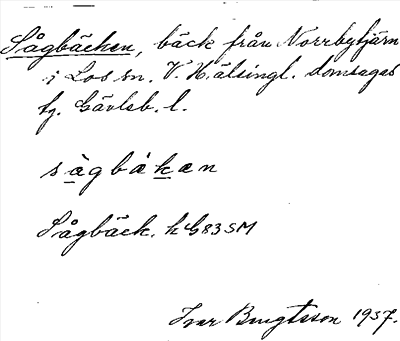 Sågbäcken, bäck från Norrbytjärn
i Los sn. V. Hälsingl. domsagas
tg. Gävleb. l.
sågbäken
Sågbäck. k G83SM
Ivar Bengtsson 1937.